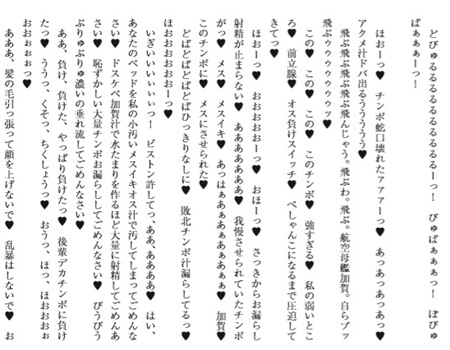 どびゅるるるるるるるるるるるーっ！　びゅばぁぁぁっ！　ぼびゅ
ばぁぁぁーっ！
ほおーっ♥　チンポ蛇口壊れたァァァーっ♥　あっあっあっあっ♥
アクメ汁ドバ出るうううううう♥
飛ぶ飛ぶ飛ぶ飛ぶ飛んじゃう。飛ぶわ。飛ぶ。航空母艦加賀。自らブッ
飛ぶゥゥゥゥゥゥゥッ♥
この♥　この♥　この♥　このチンポ♥　強すぎる♥　私の弱いとこ
ろ♥　前立腺♥　オス負けスイッチ♥　ぺしゃんこになるまで圧迫して
きてっ♥
ほおーっ♥　おおおおおーっ♥　おほーっ♥　さっきからお漏らし
射精が止まらない♥　ああああああぁ♥　我慢させられていたチンポ
がっ♥　メス♥　メスイキ♥　あっはぁあぁぁぁあぁぁ♥　加賀♥
このチンポに♥　メスにさせられた♥
どばどばどばどばひっきりなしに♥　敗北チンポ汁漏らしてるっ♥
ほおおおおおおーっ♥
いぎいいいぃぃぃっ！　ピストン許してっ、ああ、ああああ♥　はい、
あなたのベッドを私の小汚いメスイキオス汁で汚してしまってごめんな
さい♥　ドスケベ加賀汁で水たまりを作るほど大量に射精してごめんな
さい♥　恥ずかしい大量チンポお漏らししてごめんなさい♥　びうびう
ぶりゅぶりゅ濃いの垂れ流してごめんなさい♥
ああ、負け、負けた、やっぱり負けたっ♥　後輩デカチンポに負け
たっ♥　ううっ、くそっ、ちくしょうっ♥　おうっ、ほっ、ほおおおぉ
おおぉぉっ♥
あああ、髪の毛引っ張って顔を上げないで♥　乱暴はしないで♥　お